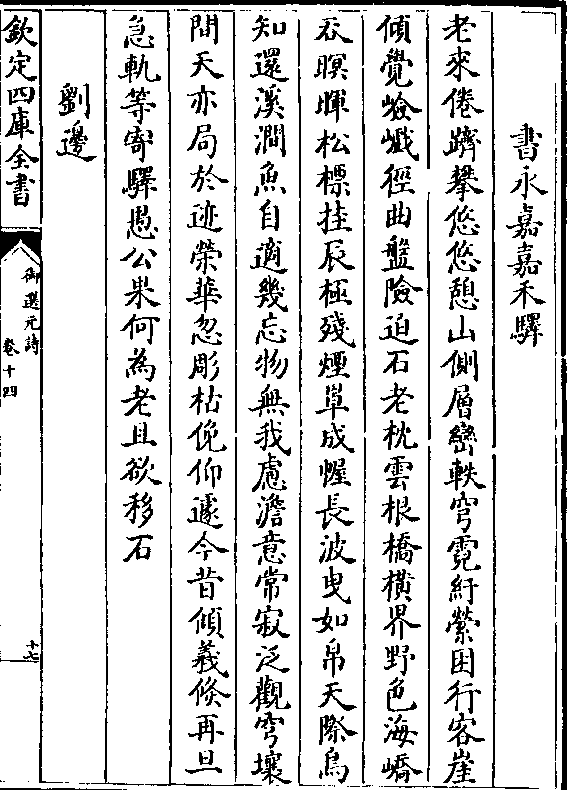 書永嘉嘉禾驛
老來倦躋攀悠悠憩山側層巒軼穹霓紆縈困行客崖
傾覺嶮巇徑曲盤險迫石老枕雲根橋橫界野色海嶠
吞暝暉松標挂辰極殘煙草成幄長波曳如帛天際鳥
知還溪澗魚自適幾忘物無我慮澹意常寂泛觀穹壤
間天亦局於迹榮華忽彫枯俛仰遽今昔傾羲倐再旦
急軌等寄驛愚公果何為老且欲移石
劉邊
欽定四庫全書
御選元詩
卷十四
十七